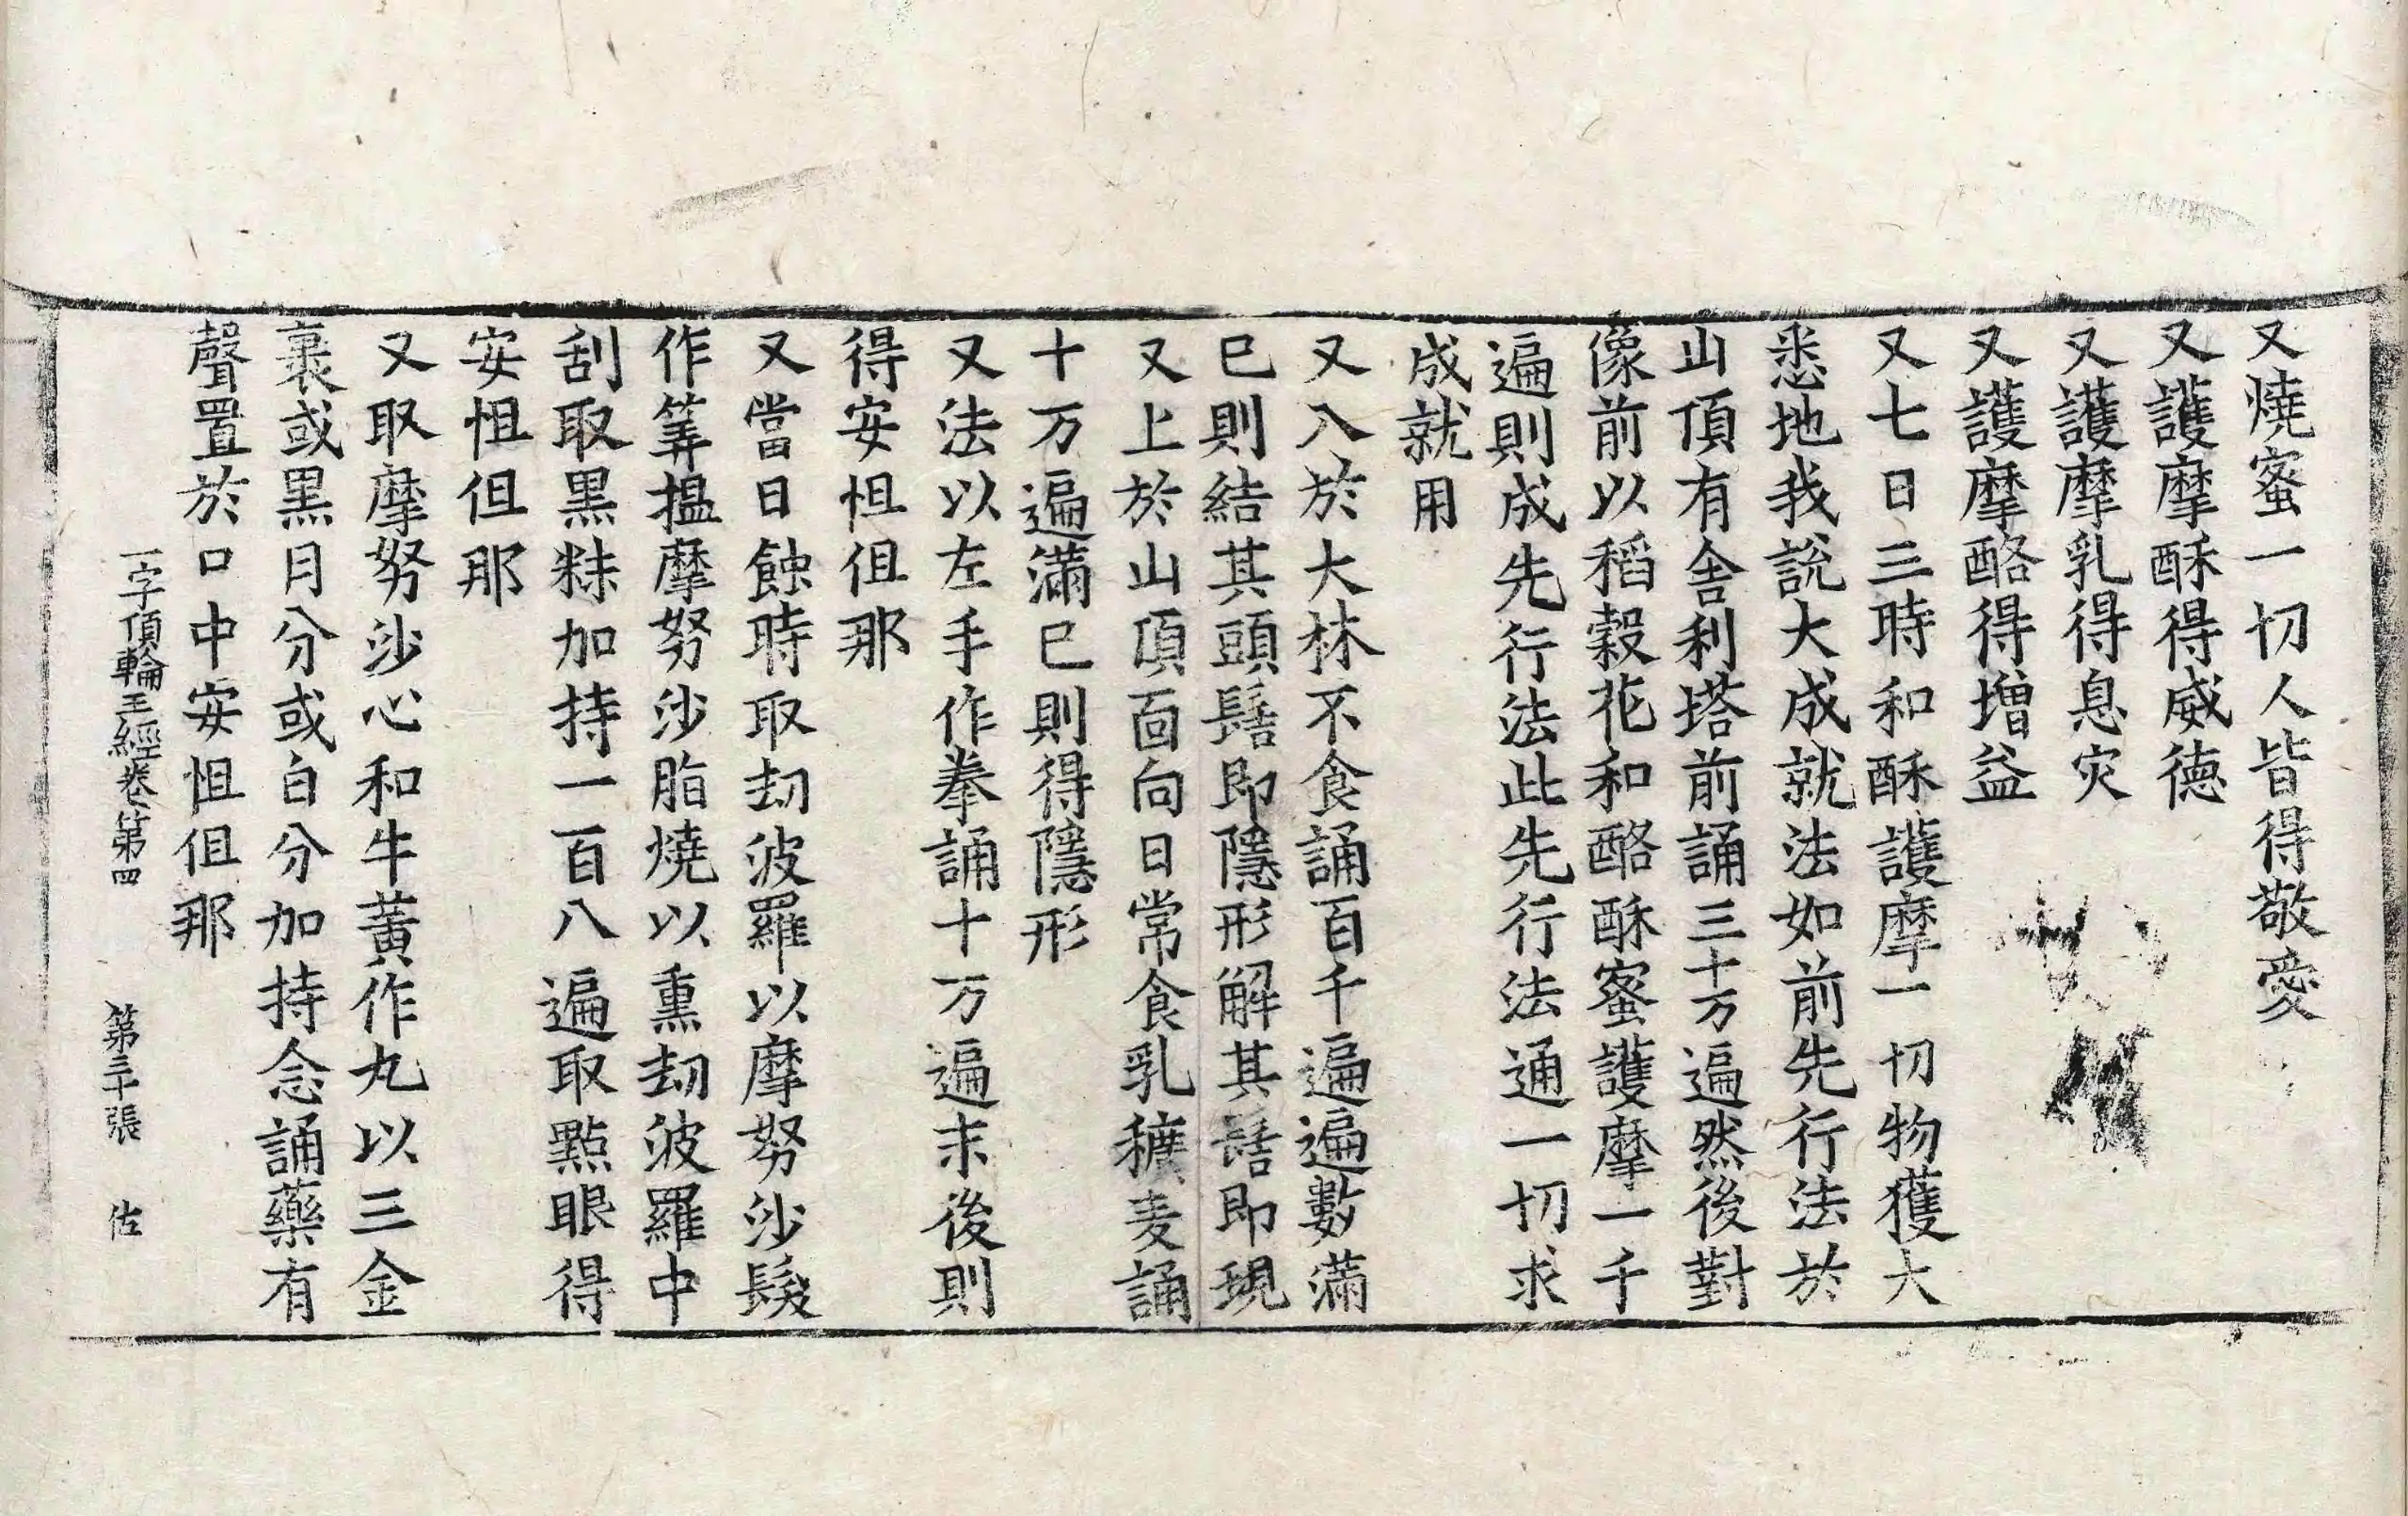 又燒蜜一切人皆得敬愛
又護摩酥得威德
又護摩乳得息灾
又護摩酪得增益
又七日三時和酥護摩一切物獲大
悉地我說大成就法如前先行法於
山頂有舍利塔前誦三十万遍然後對
像前以稻穀花和酪酥蜜護摩一千
遍則成先行法此先行法通一切求
成就用
又入於大林不食誦百千遍遍數滿
已則結其頭髻即隱形解其髻即現
又上於山頂面向日常食乳穬麦誦
十万遍滿已則得隱形
又法以左手作拳誦十万遍末後則
得安怛但那
又當日蝕時取劫波羅以摩努沙髮
作筭揾摩努沙脂燒以熏劫波羅中
刮取黑粖加持一百八遍取點眼得
安怛但那
又取摩努沙心和牛黃作丸以三金
裹或黑月分或白分加持念誦藥有
聲置於口中安怛但那
一字頂輪王經卷第四 第三十張 佐